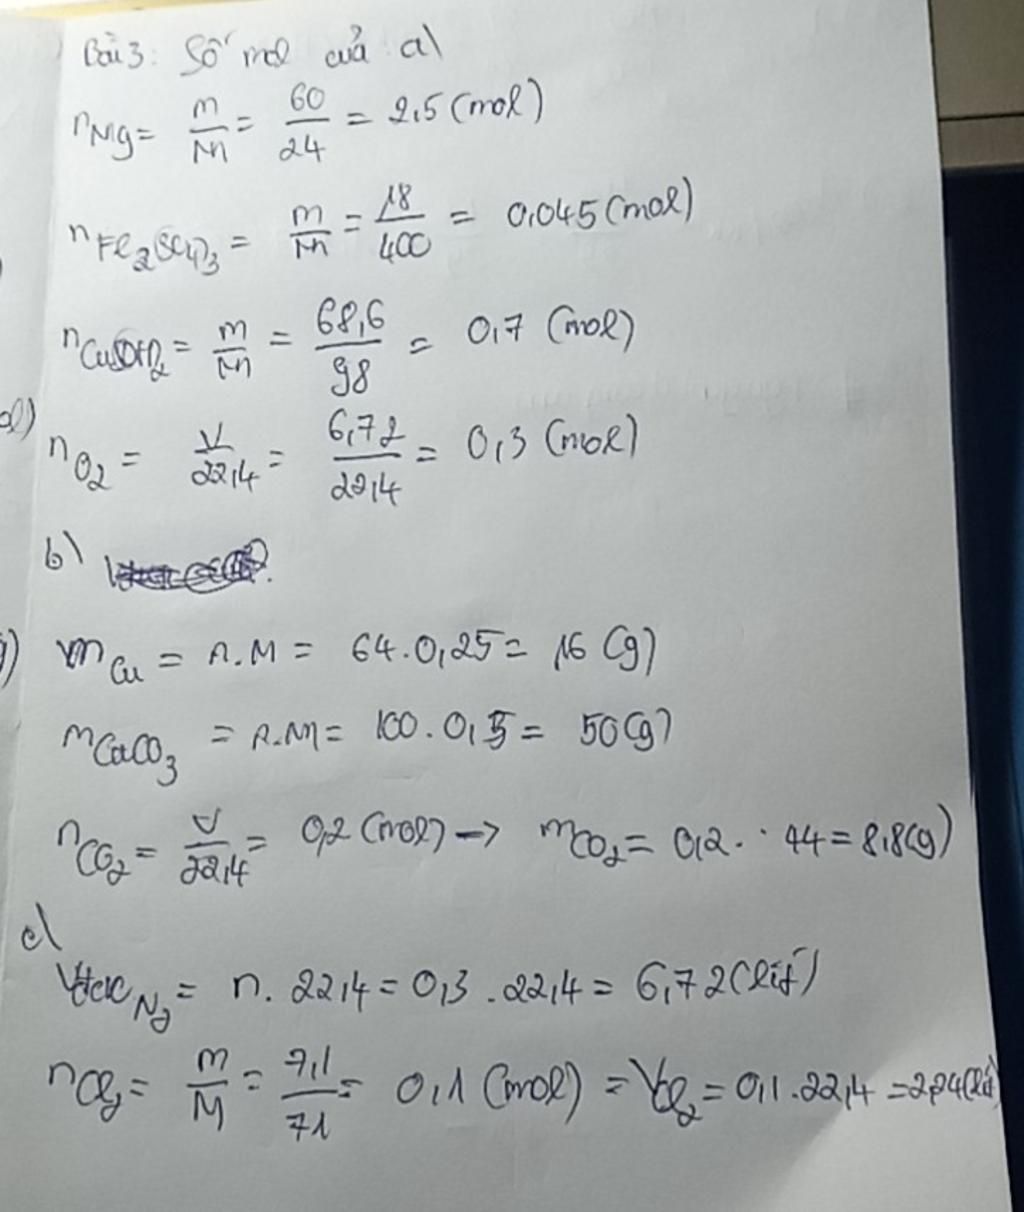 Bài 3: Số mol của a\
nMg = m/M = 60/24 = 2,5 (mol)
nFe2(SO4)3 = m/M = 18/400 = 0,045 (mol)
nCu(OH)2 = m/M = 68,6/98 = 0,7 (mol)
nO2 = V/22,4 = 6,72/22,4 = 0,3 (mol)
b\
mCu = n.M = 64.0,25 = 16 (g)
mCaCO3 = n.M = 100.0,5 = 50 (g)
nCO2 = V/22,4 = 0,2 (mol) -> mCO2 = 0,2. . 44 = 8,8 (g)
c\
Vđktc N2 = n. 22,4 = 0,3 . 22,4 = 6,72 (lít)
nCl2 = m/M = 7,1/71 = 0,1 (mol) = VCl2 = 0,1 . 22,4 = 2,24 (lít)